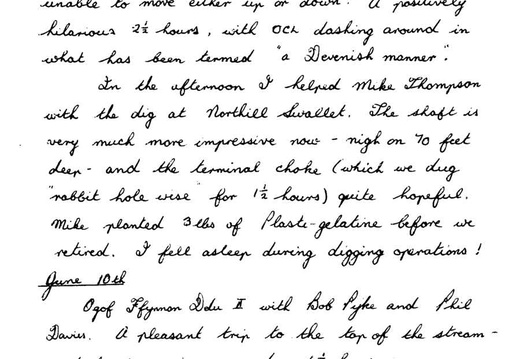 unable to move either up or down! A positively
hilarious 2½ hours, with OCL dashing around in
what has been termed "a Devenish manner".
In the afternoon I helped Mike Thompson
with the dig at Northill Swallet. The shaft is
very much more impressive now - nigh on 70 feet
deep - and the terminal choke (which we dug
"rabbit hole wise" for 1½ hours) quite hopeful.
Mike planted 3 lbs of Plaste-gelatine before we
retired. I fell asleep during digging operations!
June 10th
Ogof Ffynnon Ddu II with Bob Pyke and Phil
Davies. A pleasant trip to the top of the stream-